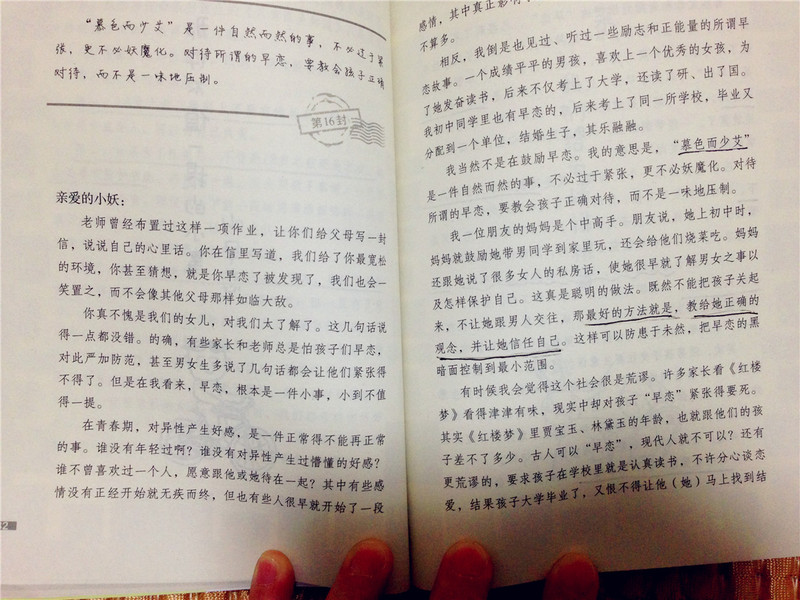 “慕色而少艾”是一件自然而然的事，不必过于紧
张，更不必妖魔化。对待所谓的早恋，要教会孩子正确
对待，而不是一味地压制。
第16封
亲爱的小妖：
老师曾经布置过这样一项作业，让你们给父母写一封
信，说说自己的心里话。你在信里写道，我们给了你最宽松
的环境，你甚至猜想，就是你早恋了被发现了，我们也会一
笑置之，而不会像其他父母那样如临大敌。
你真不愧是我们的女儿，对我们太了解了。这几句话说
得一点都没错。的确，有些家长和老师总是怕孩子们早恋，
对此严加防范，甚至男女生多说了几句话都会让他们紧张得
不得了。但是在我看来，早恋，根本是一件小事，小到不值
得一提。
在青春期，对异性产生好感，是一件正常得不能再正常
的事。谁没有年轻过啊？谁没有对异性产生过懵懂的好感？
谁不曾喜欢过一个人，愿意跟他或她待在一起？其中有些感
情没有正经开始就无疾而终，但也有些人很早就开始了一段
2
感情，其中真正影响
不算多。
相反，我倒是也见过、听过一些励志和正能量的所谓早
恋故事。一个成绩平平的男孩，喜欢上一个优秀的女孩，为
了她发奋读书，后来不仅考上了大学，还读了研、出了国。
我初中同学里也有早恋的，后来考上了同一所学校，毕业又
分配到一个单位，结婚生子，其乐融融。
我当然不是在鼓励早恋。我的意思是，“慕色而少艾”
是一件自然而然的事，不必过于紧张，更不必妖魔化。对待
所谓的早恋，要教会孩子正确对待，而不是一味地压制。
我一位朋友的妈妈是个中高手。朋友说，她上初中时，
妈妈就鼓励她带男同学到家里玩，还会给他们烧菜吃。妈妈
还跟她说了很多女人的私房话，使她很早就了解男女之事以
及怎样保护自己。这真是聪明的做法。既然不能把孩子关起
来，不让她跟男人交往，那最好的方法就是，教给她正确的
观念，并让她信任自己。这样可以防患于未然，把早恋的黑
暗面控制到最小范围。
有时候我会觉得这个社会很是荒谬。许多家长看《红楼
梦》看得津津有味，现实中却对孩子“早恋”紧张得要死。
其实《红楼梦》里贾宝玉、林黛玉的年龄，也就跟他们的孩
子差不了多少。古人可以“早恋”，现代人就不可以？还有
更荒谬的，要求孩子在学校里就是认真读书，不许分心谈恋
爱，结果孩子大学毕业了，又恨不得让他（她）马上找到结